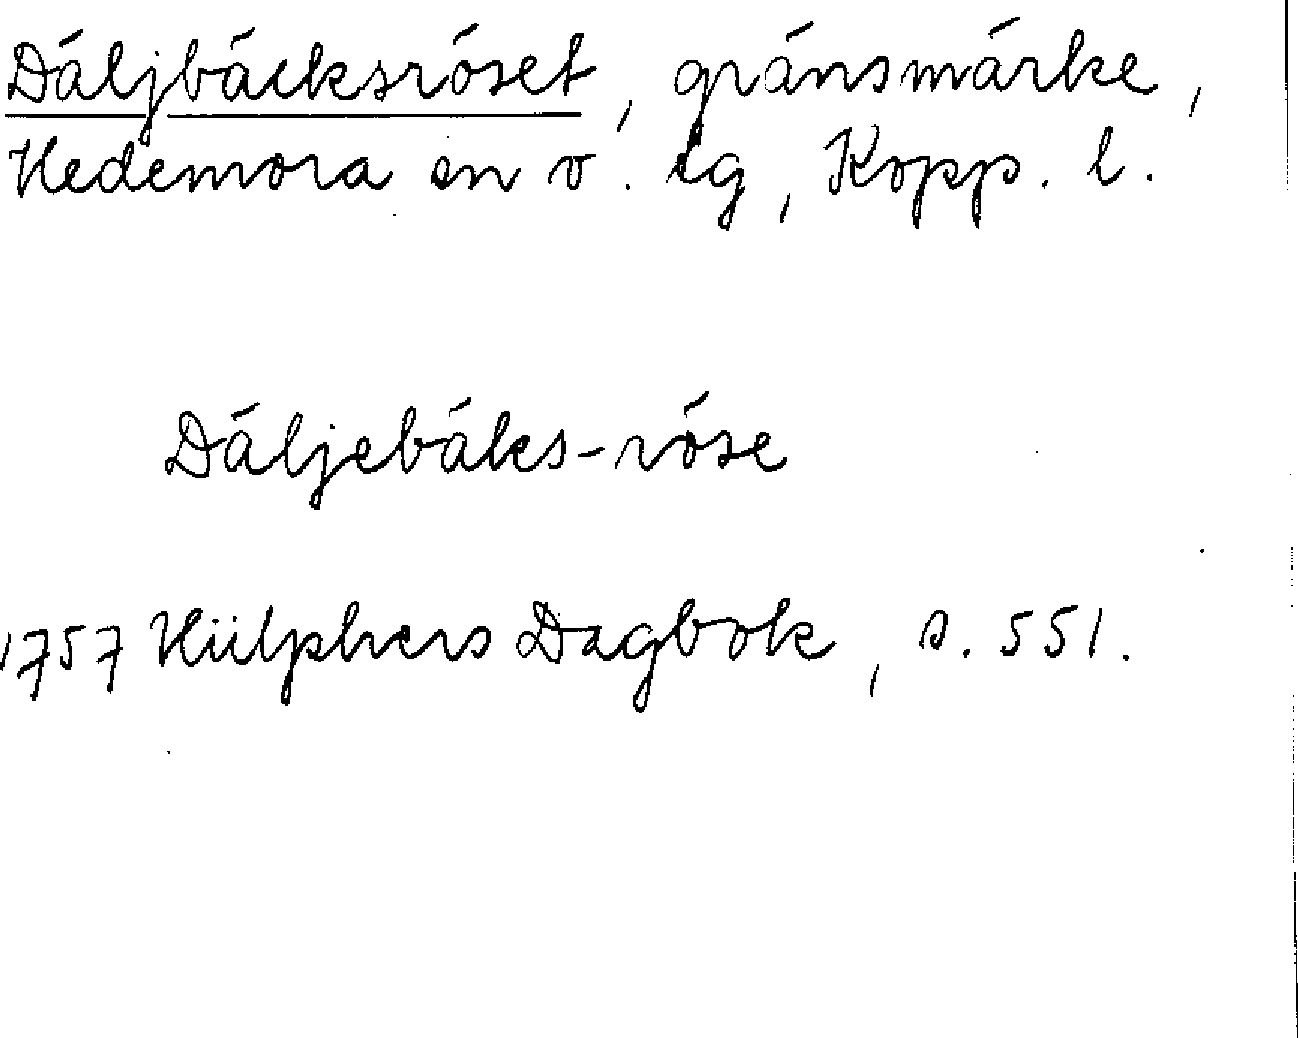 Däljbäcksröset, gränsmärke,
Hedemora sn o. lg, Kopp. l.
Däljebäks-röse
1757 Hülphers Dagbok, s. 551.